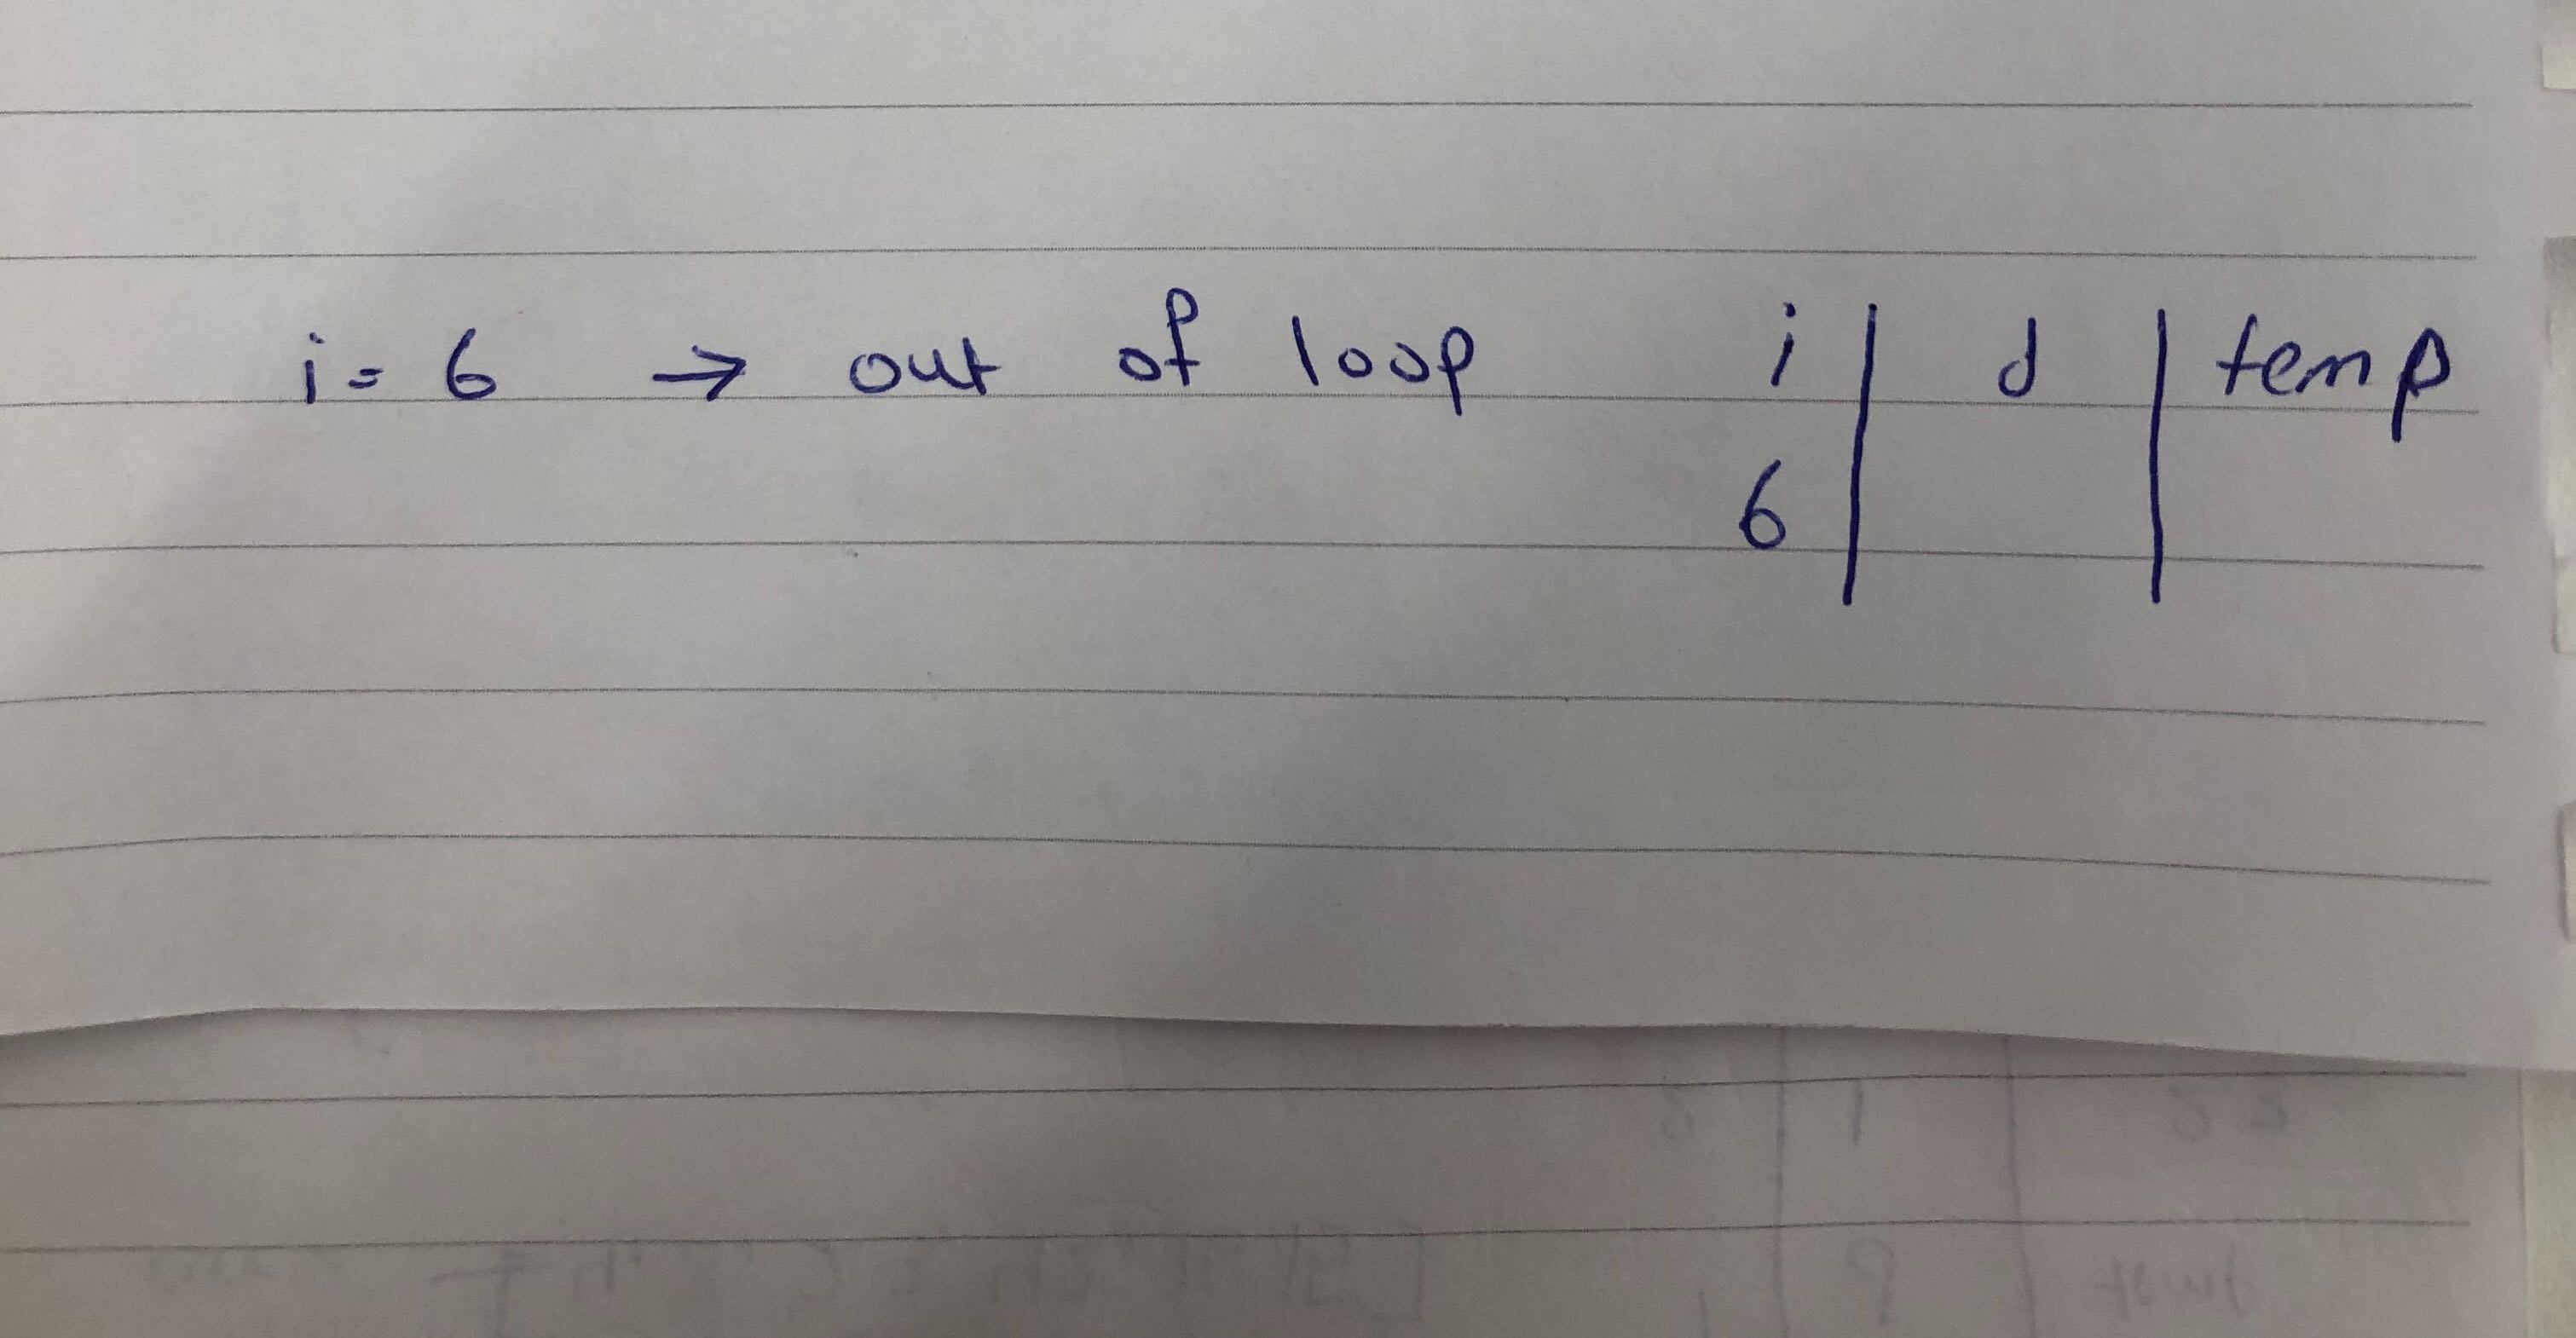 i = 6 → out of loop i | d | temp
6